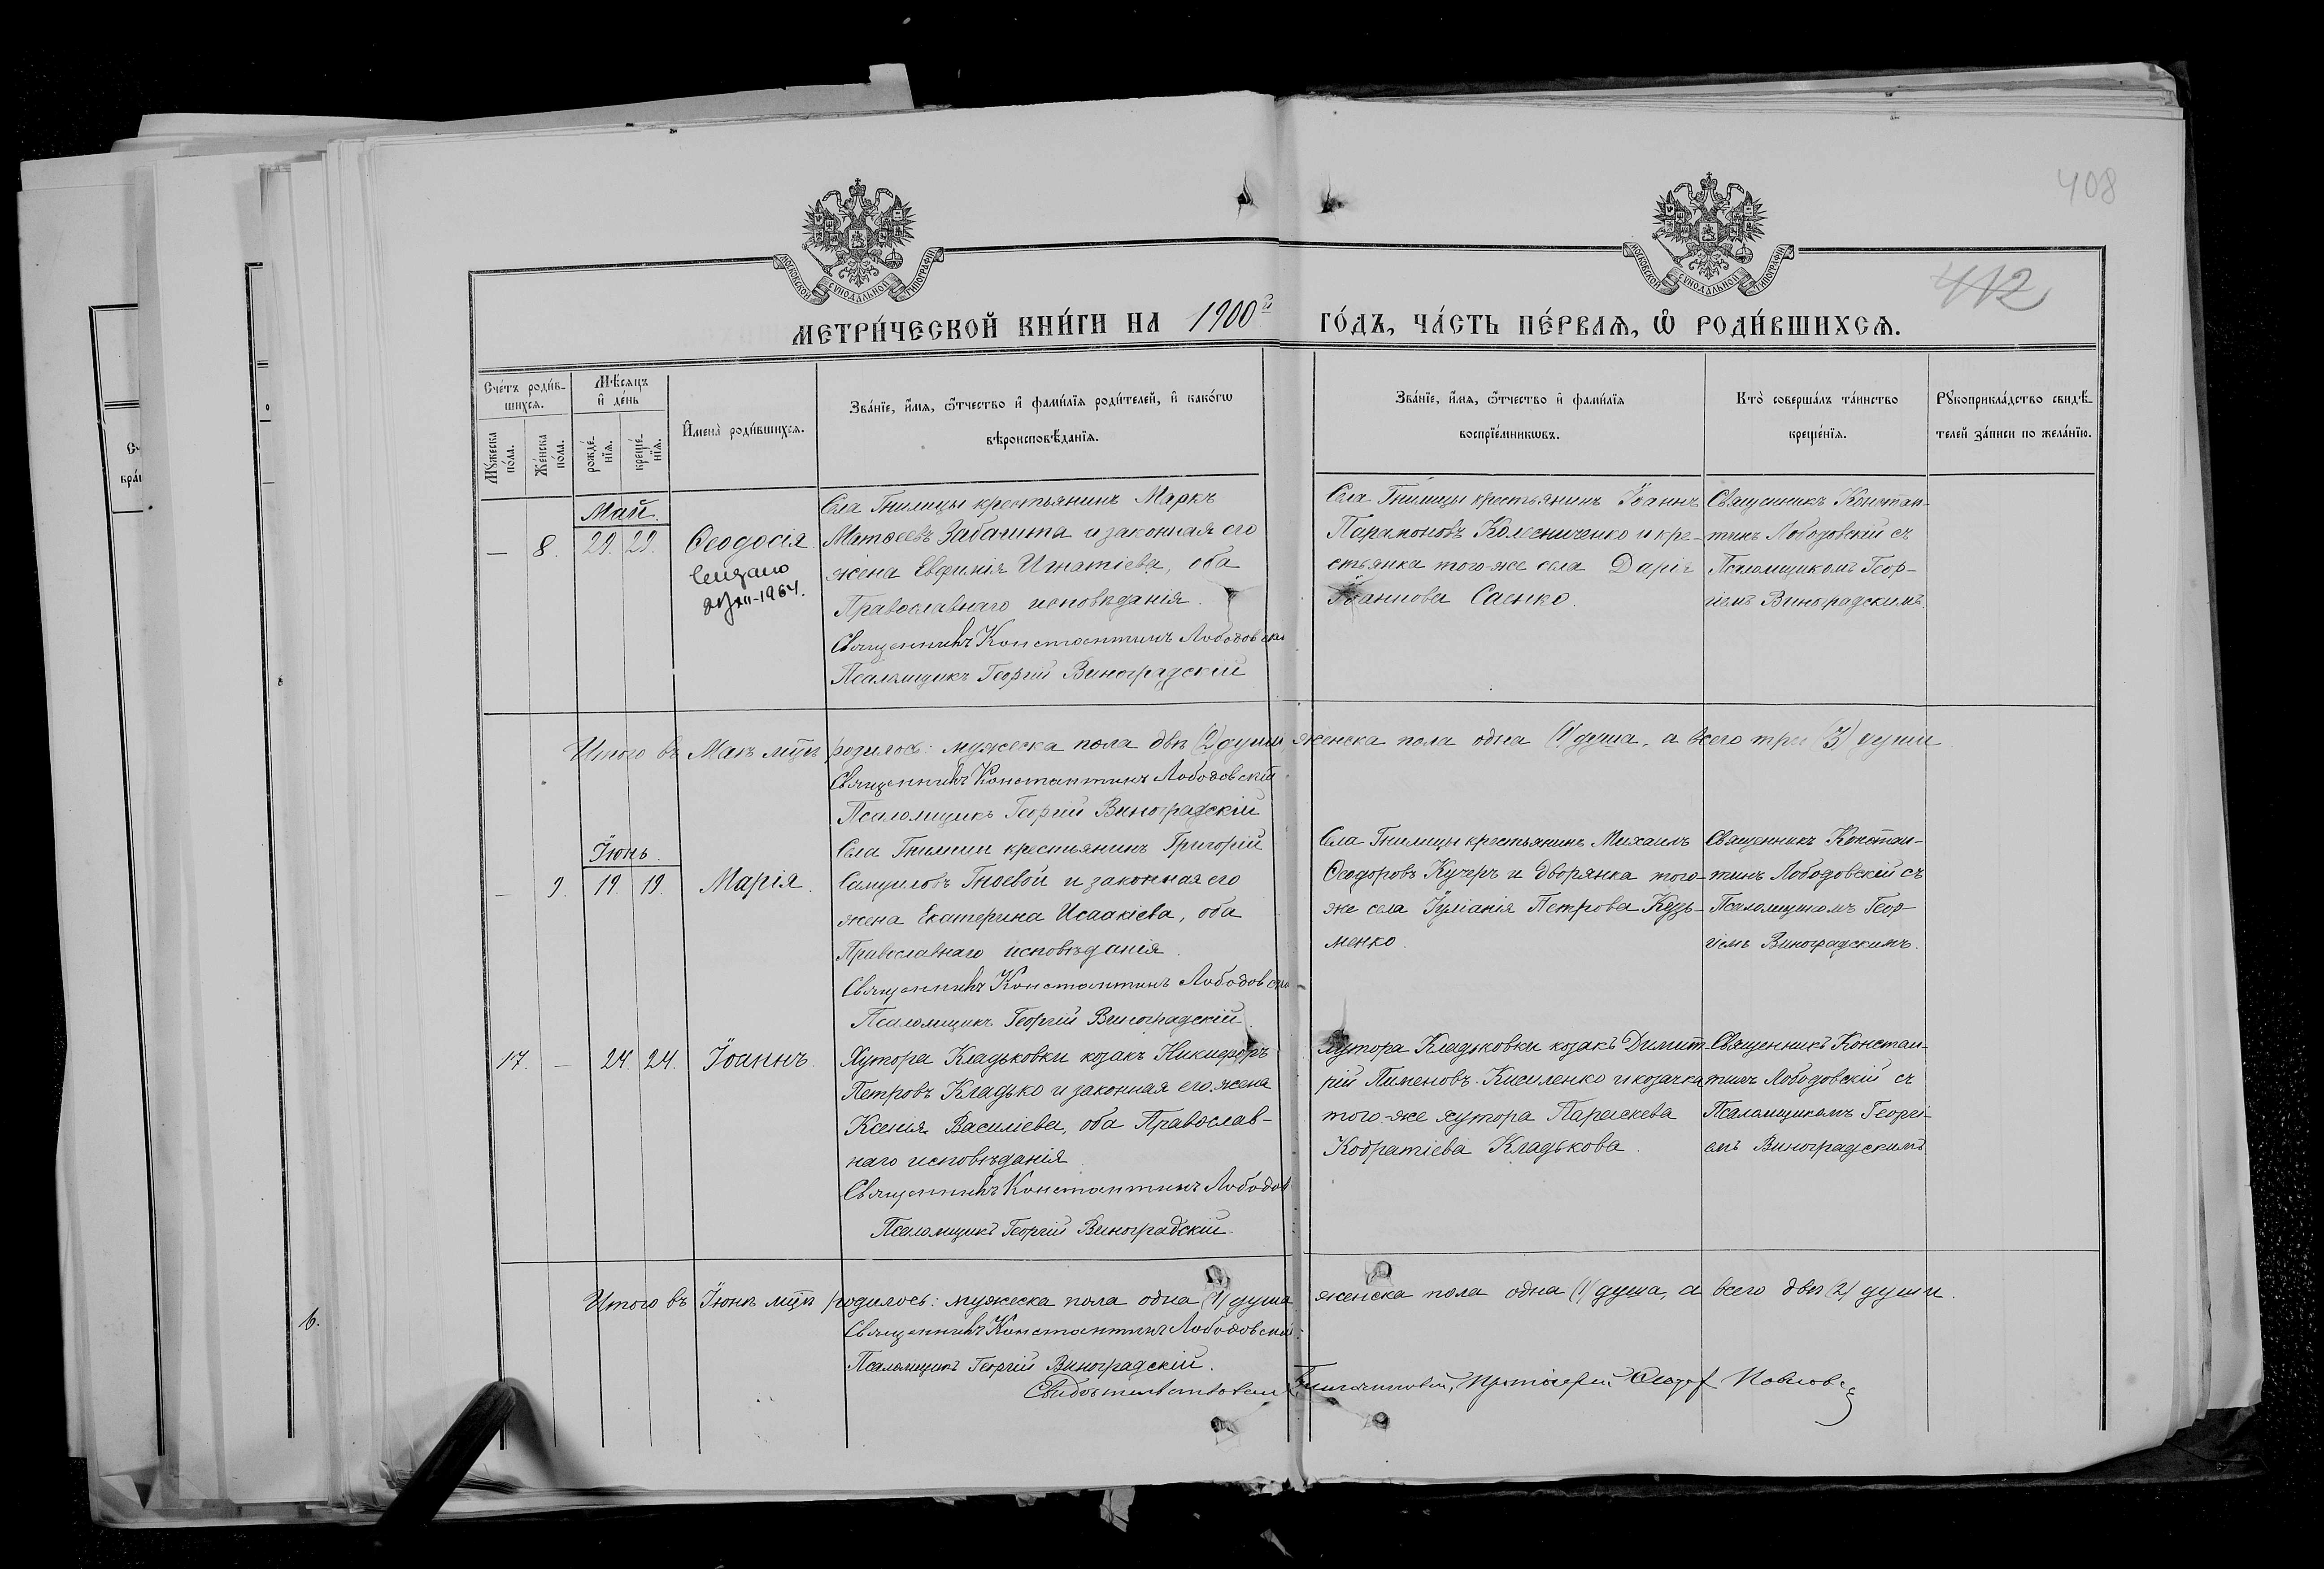 408
412
МОСКОВСКОЙ СѴНОДАЛЬНОЙ ТИПОГРАФІИ
МОСКОВСКОЙ СѴНОДАЛЬНОЙ ТИПОГРАФІИ
МЕТРИ́ЧЕСКОЙ КНИ́ГИ НА 1900й ГО́ДЪ, ЧА́СТЬ ПЕ́РВАѦ, Ѡ҆ РОДИ́ВШИХСѦ.
Сче́тъ роди́в-
шихсѧ.
Мꙋ́жеска
по́ла.
Же́нска
по́ла.
Мѣ́сѧцъ
и҆ де́нь
рожде́-
нїѧ.
креще́-
нїѧ.
И҆мена̀ роди́вшихсѧ.
Зва́нїе, и҆́мѧ, ѻ҆́тчество и҆ фами́лїѧ роди́телей, и҆ како́гѡ
вѣроисповѣ́данїѧ.
Зва́нїе, и҆́мѧ, ѻ҆́тчество и҆ фами́лїѧ
воспрїе́мникѡвъ.
Кто̀ соверша́лъ та́инство
креще́нїѧ.
Рꙋкоприкла́дство свидѣ́-
телей за́писи по жела́нїю.
Май.
— 8. 29. 29. Ѳеодосія.
XII-1964.
Села Гнилицы крестьянинъ Маркъ
Матѳеевъ Забашта и законная его
жена Евфимія Игнатіева, оба
Православнаго исповѣданія.
Священникъ Константинъ Лободовскі
Псаломщикъ Георгій Виноградскій
Села Гнилицы крестьянинъ Іоаннъ
Парамоновъ Колесниченко и кре-
стьянка того-же села Дарія
Іоаннова Саенко.
Священникъ Констан-
тинъ Лободовскій съ
Псаломщикомъ Геор-
гіемъ Виноградскимъ.
Итого въ Маѣ мцѣ родилось: мужеска пола двѣ (2) души, женска пола одна (1) душа, а всего три (3) души.
Священникъ Константинъ Лободовскій
Псаломщикъ Георгій Виноградскій
Іюнь.
— 9. 19. 19. Марія.
Села Гнилицы крестьянинъ Григорій
Самуиловъ Гноевой и законная его
жена Екатерина Исаакіева, оба
Православнаго исповѣданія.
Священникъ Константинъ Лободовскі
Псаломщикъ Георгій Виноградскій.
Села Гнилицы крестьянинъ Михаилъ
Ѳеодоровъ Кучеръ и дворянка того-
же села Іуліанія Петрова Кузь-
менко.
Священникъ Констан-
тинъ Лободовскій съ
Псаломщикомъ Геор-
гіемъ Виноградскимъ.
17. — 24. 24. Іоаннъ.
Хутора Кладьковки козакъ Никифоръ
Петровъ Кладько и законная его жена
Ксенія Василіева, оба Православ-
наго исповѣданія.
Священникъ Константинъ Лободов
Псаломщикъ Георгій Виноградскій.
Хутора Кладьковки козакъ Димит-
рій Пименовъ Кисиленко и козачка
того-же хутора Параскева
Кодратіева Кладькова.
Священникъ Констан-
тинъ Лободовскій съ
Псаломщикомъ Георгі-
емъ Виноградскимъ
Итого въ Іюнѣ мцѣ родилось: мужеска пола одна (1) душа женска пола одна (1) душа, а всего двѣ (2) души.
Священникъ Константинъ Лободовскій
Псаломщикъ Георгій Виноградскій.
Протоіерей Павловъ
6.